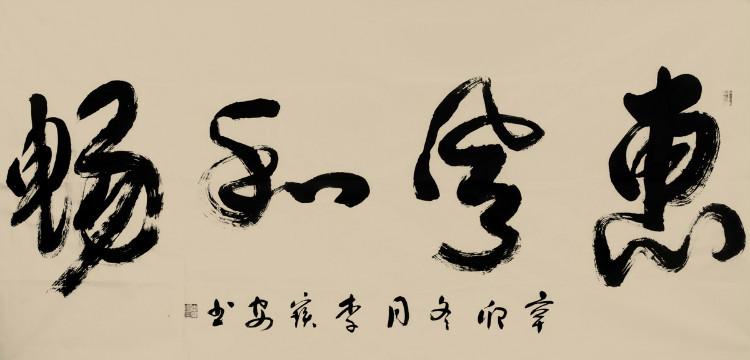 惠風和暢
辛卯冬月李安书